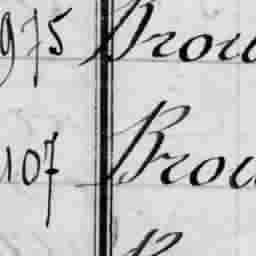 975 Brou
107 Brou